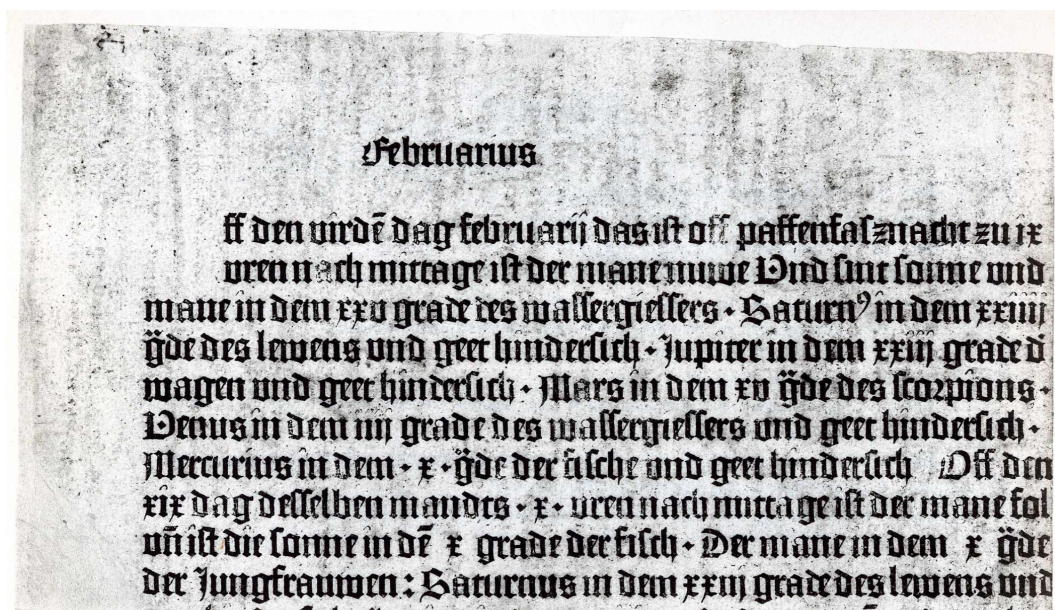 Februarius
ff den virdē dag februarij das ist off paffenfasznacht zu ix
vren nach mittage ist der mane nuwe Und sint sonne und
mane in dem xxv grade des wassergiessers · Saturnꝰ in dem xxiiij
g̈de des lewens vnd geet hindersich · Jupiter in dem xxiij grade d̄
wagen vnd geet hindersich · Mars in dem xv g̈de des scorpions ·
Venus in dem iiij grade des wassergiessers vnd geet hindersich ·
Mercurius in dem · x · g̈de der fische vnd geet hindersich Off den
xix dag desselben mandts · x · vren nach mittage ist der mane fol
vn̄ ist die sonne in dē x grade der fisch · Der mane in dem x g̈de
der Jungfrauwen : Saturnus in dem xxiij grade des lewens vnd